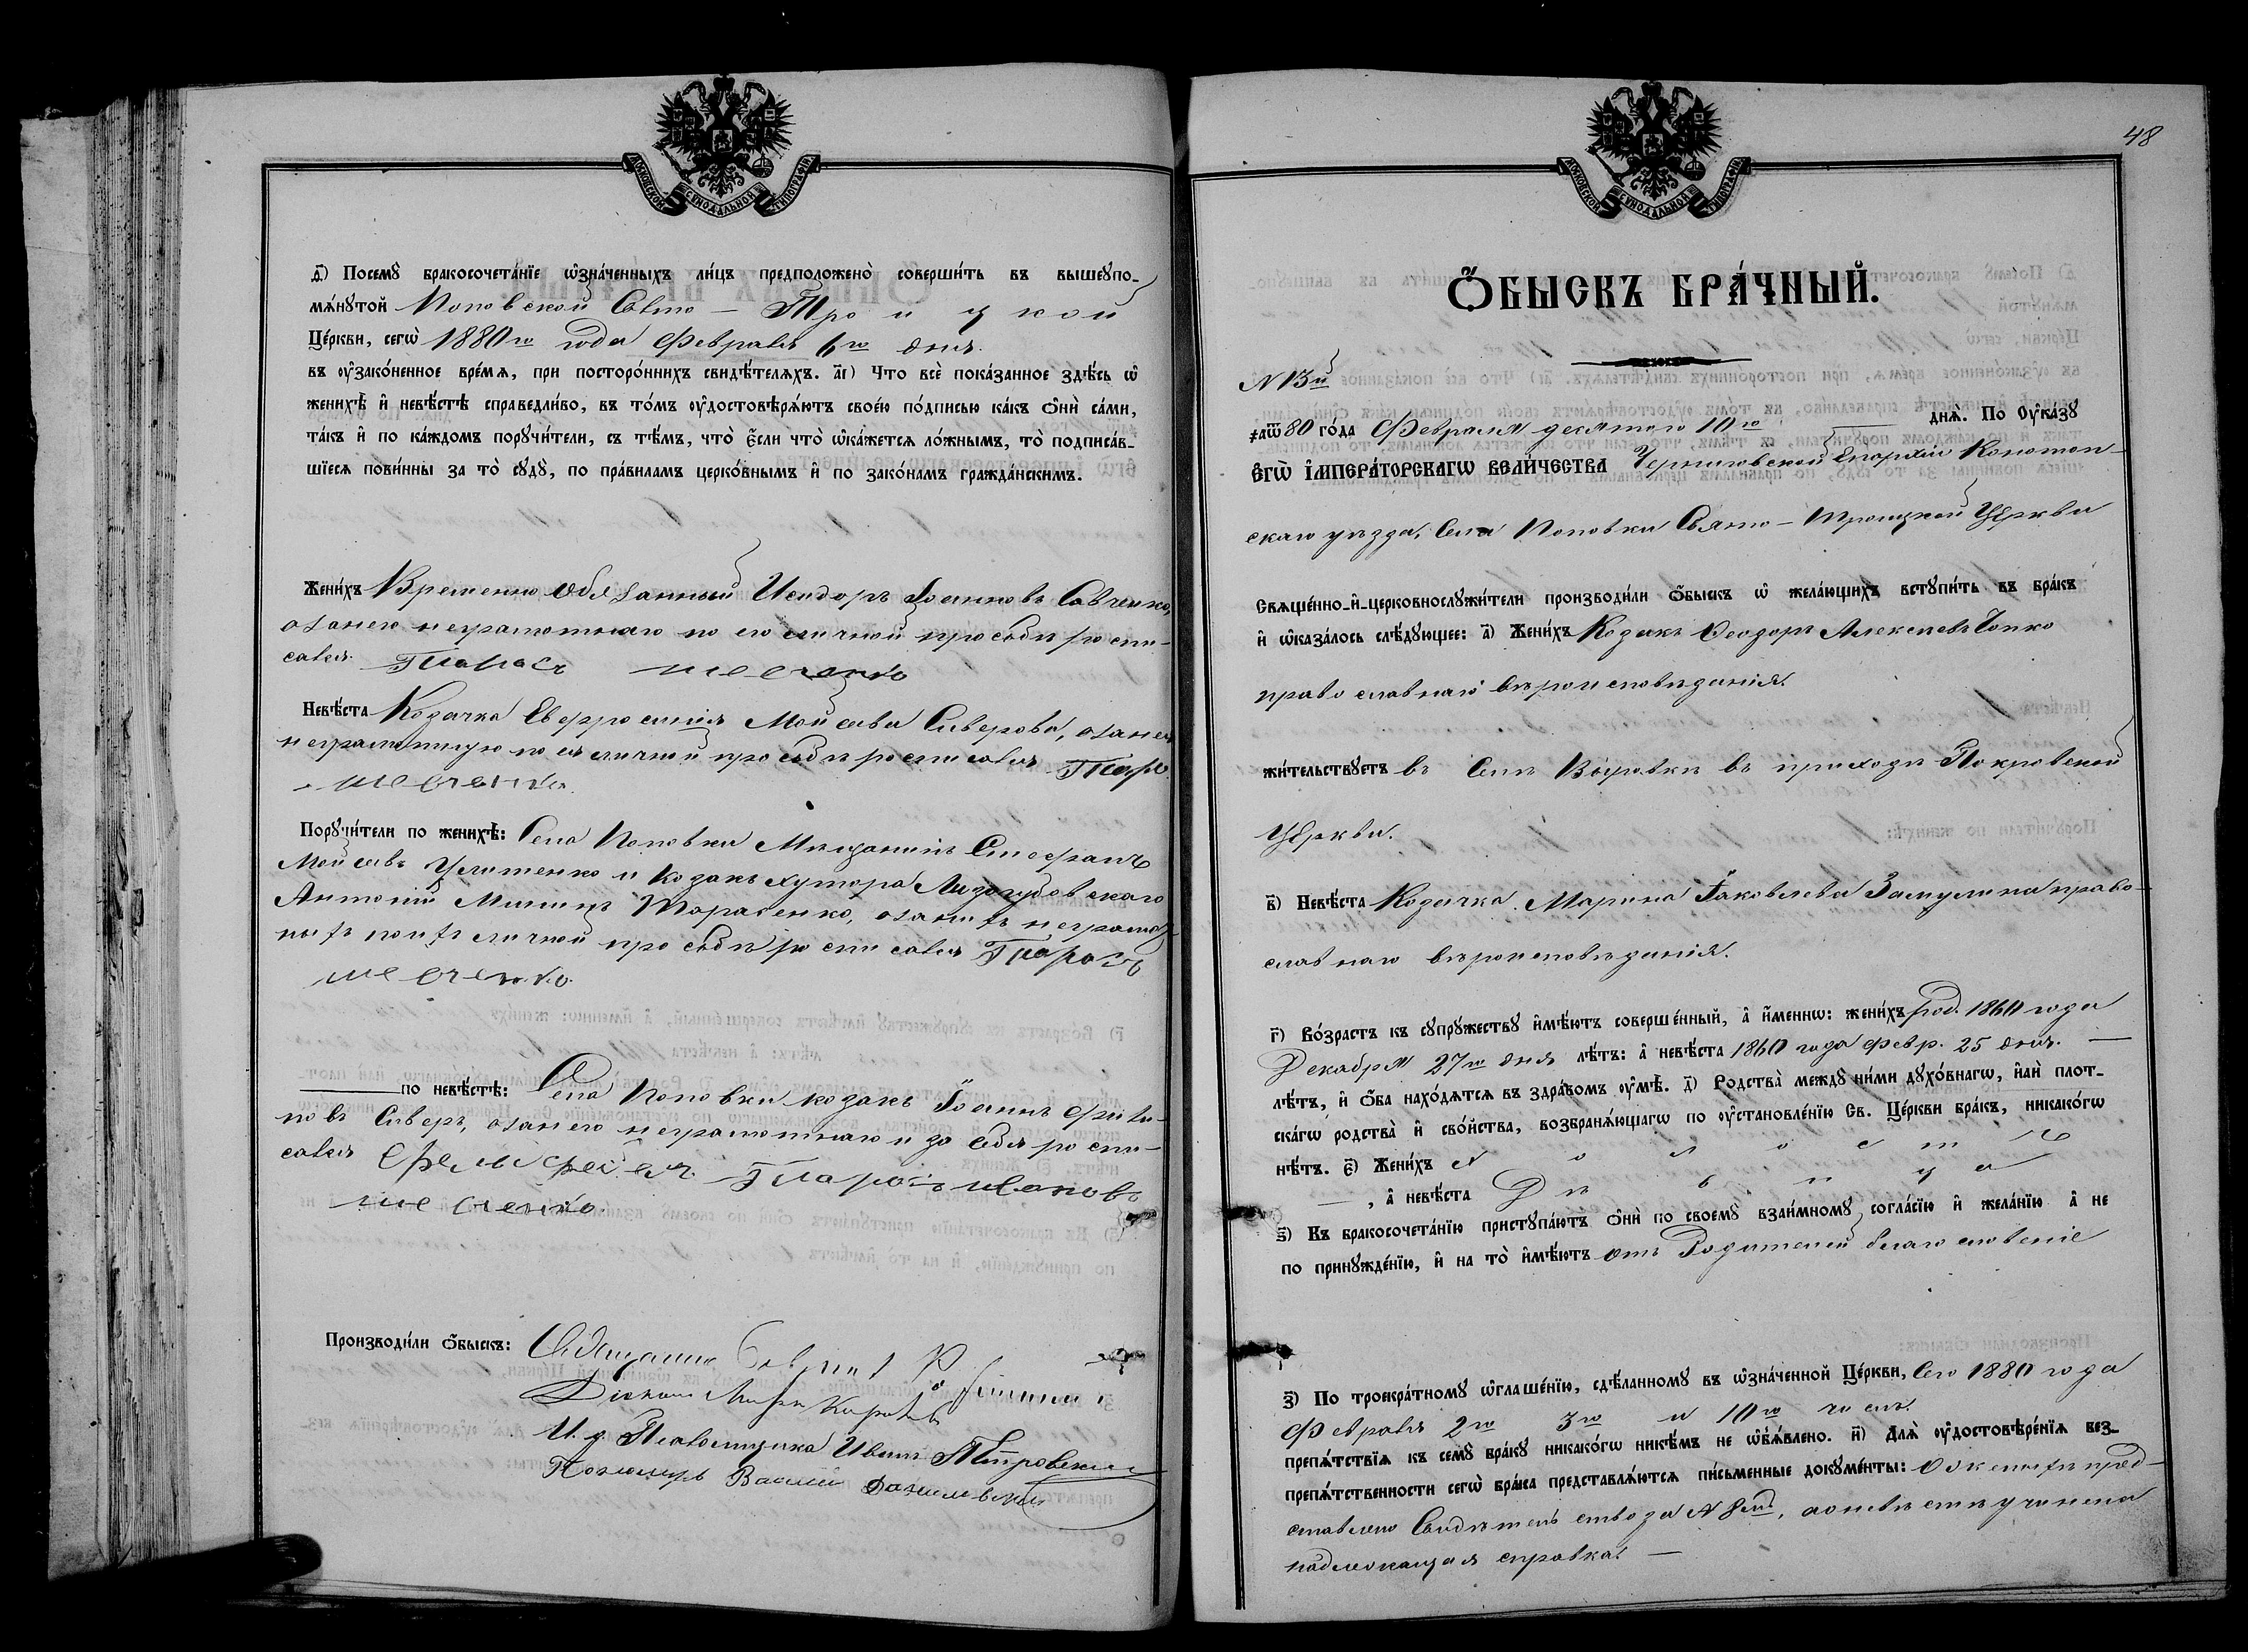 МОСКОВСКОЙ СѴНОДАЛЬНОЙ ТИПОГРАФІИ
҃і) Посемꙋ̀ бракосочета́нїе ѡ҆зна́ченныхъ ли́цъ предположено̀ соверши́ть въ вышеꙋпо-
мѧ́нꙋтой Поповской Свято - Троицкой
Це́ркви, сегѡ̀ 1880го года Февраля 6го дня
въ ᲂу҆зако́ненное вре́мѧ, при посторо́ннихъ свидѣ́телѧхъ. а҃і) Что всѐ пока́занное здѣ́сь ѡ҆
женихѣ̀ и҆ невѣ́стѣ справедли́во, въ то́мъ ᲂу҆достовѣрѧ́ютъ свое́ю по́дписью ка́къ ѻ҆нѝ са́ми,
та́къ и҆ по ка́ждомъ порꙋчи́тели, съ тѣ́мъ, что̀ є҆́сли что̀ ѡ҆ка́жетсѧ ло́жнымъ, то̀ подписа́в-
шїесѧ пови́нны за то̀ сꙋдꙋ̀, по пра́виламъ церко́внымъ и҆ по зако́намъ гражда́нскимъ.
Жени́хъ Временно обязанный Исидоръ Іоанновъ Савченко,
а занего неграмотнаго по его личной прозьбѣ роспи-
сался Тарасъ
Невѣ́ста Козачка Евфросинія Мойсеева Сиверова, а занея
неграмотную по ея личной прозьбѣ росписался Тарас
Порꙋчи́тели по женихѣ̀: Села Поповки Мѣщанинъ Стефанъ
Мойсеевъ Улитенко и козакъ хутора Лизогубовскаго
Антоній Мининъ Тарасенко, а занихъ неграмот-
ныхъ поихъ личной прозьбѣ росписался Тарасъ
по невѣ́стѣ: Села Поповки козакъ Іоаннъ
Сиверъ, а занего неграмотнаго и за себя роспи-
сался Тарасъ Ивановъ
Производи́ли ѻ҆́быскъ: Священникъ
Діаконъ
И. д. Псаломщика Иванъ Петровскій
Пономарь Василій Данилевскій
48
МОСКОВСКОЙ СѴНОДАЛЬНОЙ ТИПОГРАФІИ
Ѻ҆́БЫСКЪ БРА́ЧНЫЙ.
N 13й
҂аѿ80 го́да Февраля десятого 10го днѧ̀. По Оу҆ка́зꙋ
Є҆ГѠ̀ И҆МПЕРА́ТОРСКАГѠ ВЕЛИ́ЧЕСТВА Черниговской Епархіи Конотоп-
скаго уѣзда, Села Поповки Свято - Троицкой Церкви
Свѧще́нно-и҆-церковнослꙋжи́тели производи́ли ѻ҆́быскъ ѡ҆ жела́ющихъ встꙋпи́ть въ бра́къ
и҆ ѡ҆каза́лось слѣ́дꙋющее: а҃) Жени́хъ Козакъ Ѳеодоръ Алексѣевъ Чопко
православнаго вѣроисповѣданія.
жи́тельствꙋетъ въ Селѣ Вировкѣ въ приходѣ Покровской
Церкви.
в҃) Невѣ́ста Козачка Марина Іаковлева Замулина право-
славнаго вѣроисповѣданія.
г҃) Во́зрастъ къ сꙋпрꙋ́жествꙋ и҆мѣ́ютъ соверше́нный, а҆ и҆́меннѡ: жени́хъ род. 1860 года
Декабря 27го дня лѣ́тъ: а҆ невѣ́ста 1860 года февр. 25 дня.
лѣ́тъ, и҆ ѻ҆́ба нахо́дѧтсѧ въ здра́вомъ ᲂу҆мѣ̀. д҃) Родства̀ междꙋ ни́ми дꙋхо́внагѡ, и҆лѝ пло́т-
скагѡ родства̀ и҆ сво́йства, возбранѧ́ющагѡ по ᲂу҆становле́нїю Св. Це́ркви бра́къ, никако́гѡ
нѣ́тъ. є҃) Жени́хъ холостъ
, а҆ невѣ́ста Дѣвица
ѕ҃) Къ бракосочета́нїю пристꙋпа́ютъ ѻ҆нѝ по своемꙋ̀ взаи́мномꙋ согла́сїю и҆ жела́нїю а҆ не
по принꙋжде́нїю, и҆ на то̀ и҆мѣ́ютъ отъ Родителей благословеніе
з҃) По троекра́тномꙋ ѡ҆глаше́нїю, сдѣ́ланномꙋ въ ѡ҆зна́ченной Це́ркви, Сего 1880 года
Февраля 2го 3го и 10го чиселъ
препѧ́тствїѧ къ семꙋ̀ бра́кꙋ никако́гѡ никѣ́мъ не ѡ҆б̾ѧ́влено. и҃) Длѧ̀ ᲂу҆достовѣре́нїѧ без-
препѧ́тственности сегѡ̀ бра́ка представлѧ́ютсѧ пи́сьменные докꙋме́нты: О женихѣ пред-
ставлено Свидѣтельство за N 8мъ, а о невѣстѣ учинена
надлежащая справка. —